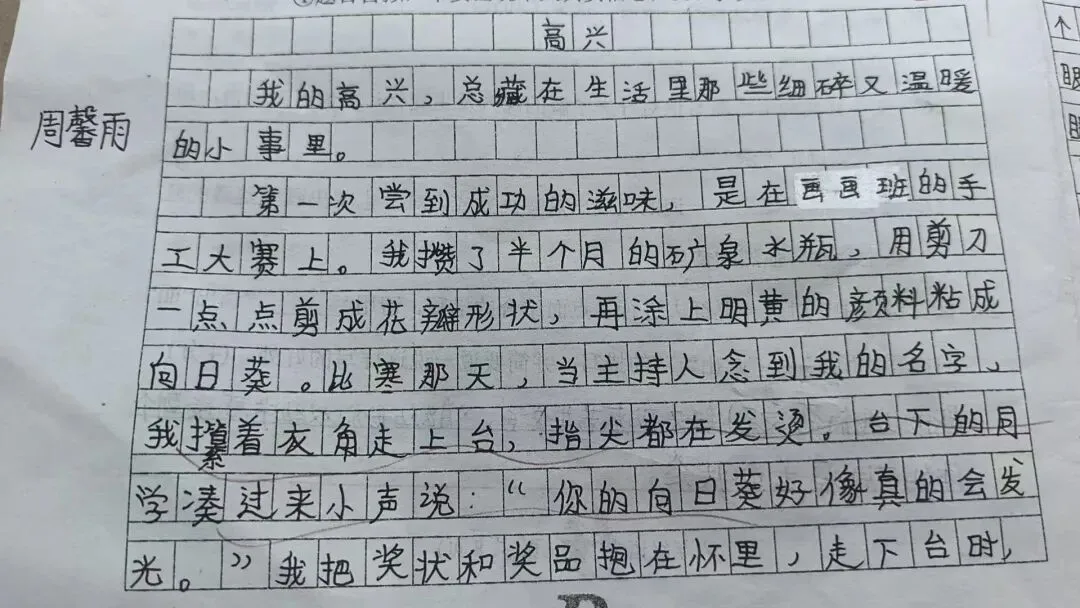 高兴
我的高兴，总藏在生活里那些细碎又温暖
周馨雨
的小事里。
第一次尝到成功的滋味，是在画画班的手
工大赛上。我攒了半个月的矿泉水瓶，用剪刀
一点点剪成花瓣形状，再涂上明黄的颜料粘成
向日葵。比赛那天，当主持人念到我的名字，
我攥着衣角走上台，指尖都在发烫。台下的同
学凑过来小声说：“你的向日葵好像真的会发
光。”我把奖状和奖品抱在怀里，走下台时，